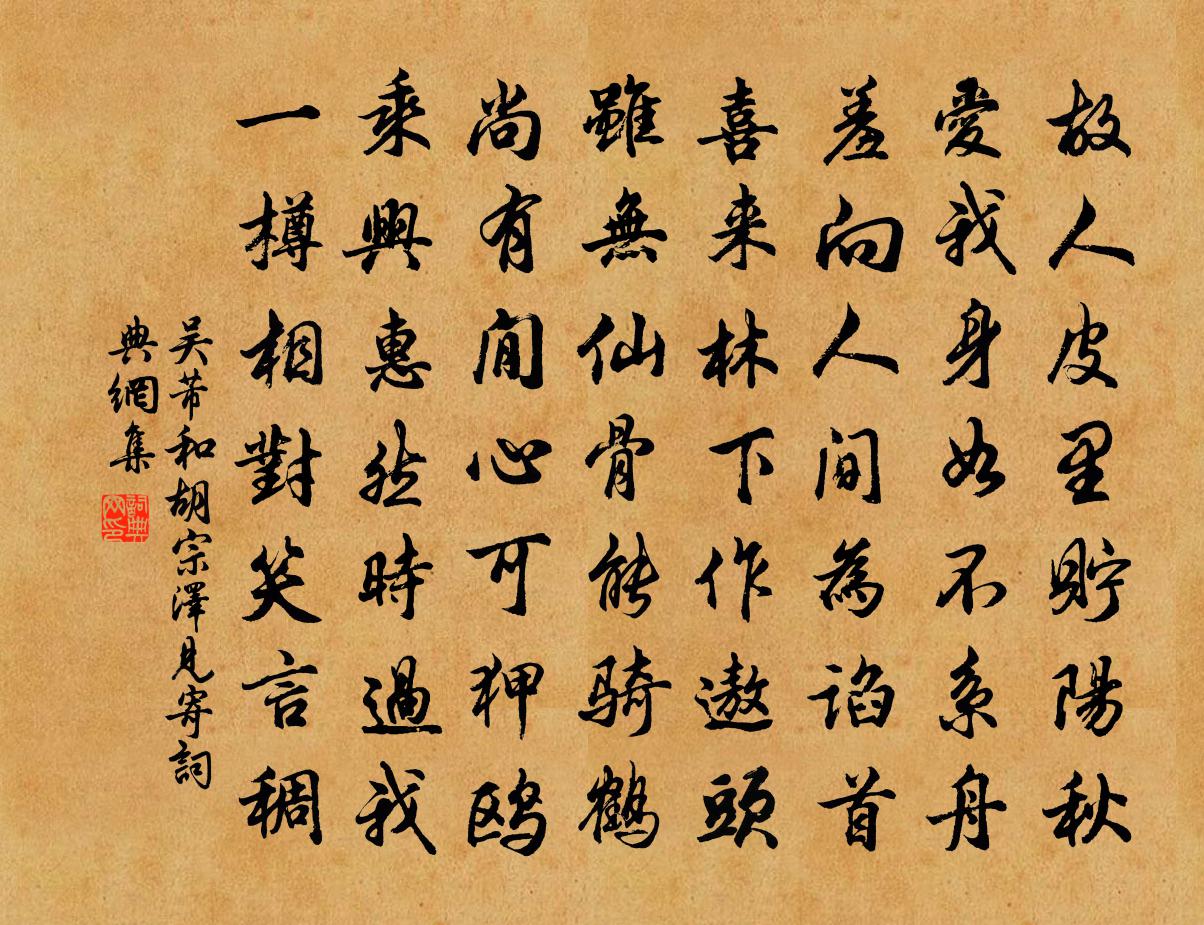 故人皮里貯陽秋
愛我身如不系舟
羞向人間為谄首
喜来林下作遨頭
雖無仙骨能騎鶴
尚有閒心可狎鸥
乘興惠然時過我
一樽相對笑言稠
吴芾和胡宗澤見寄詞
典網集
詞典
网印